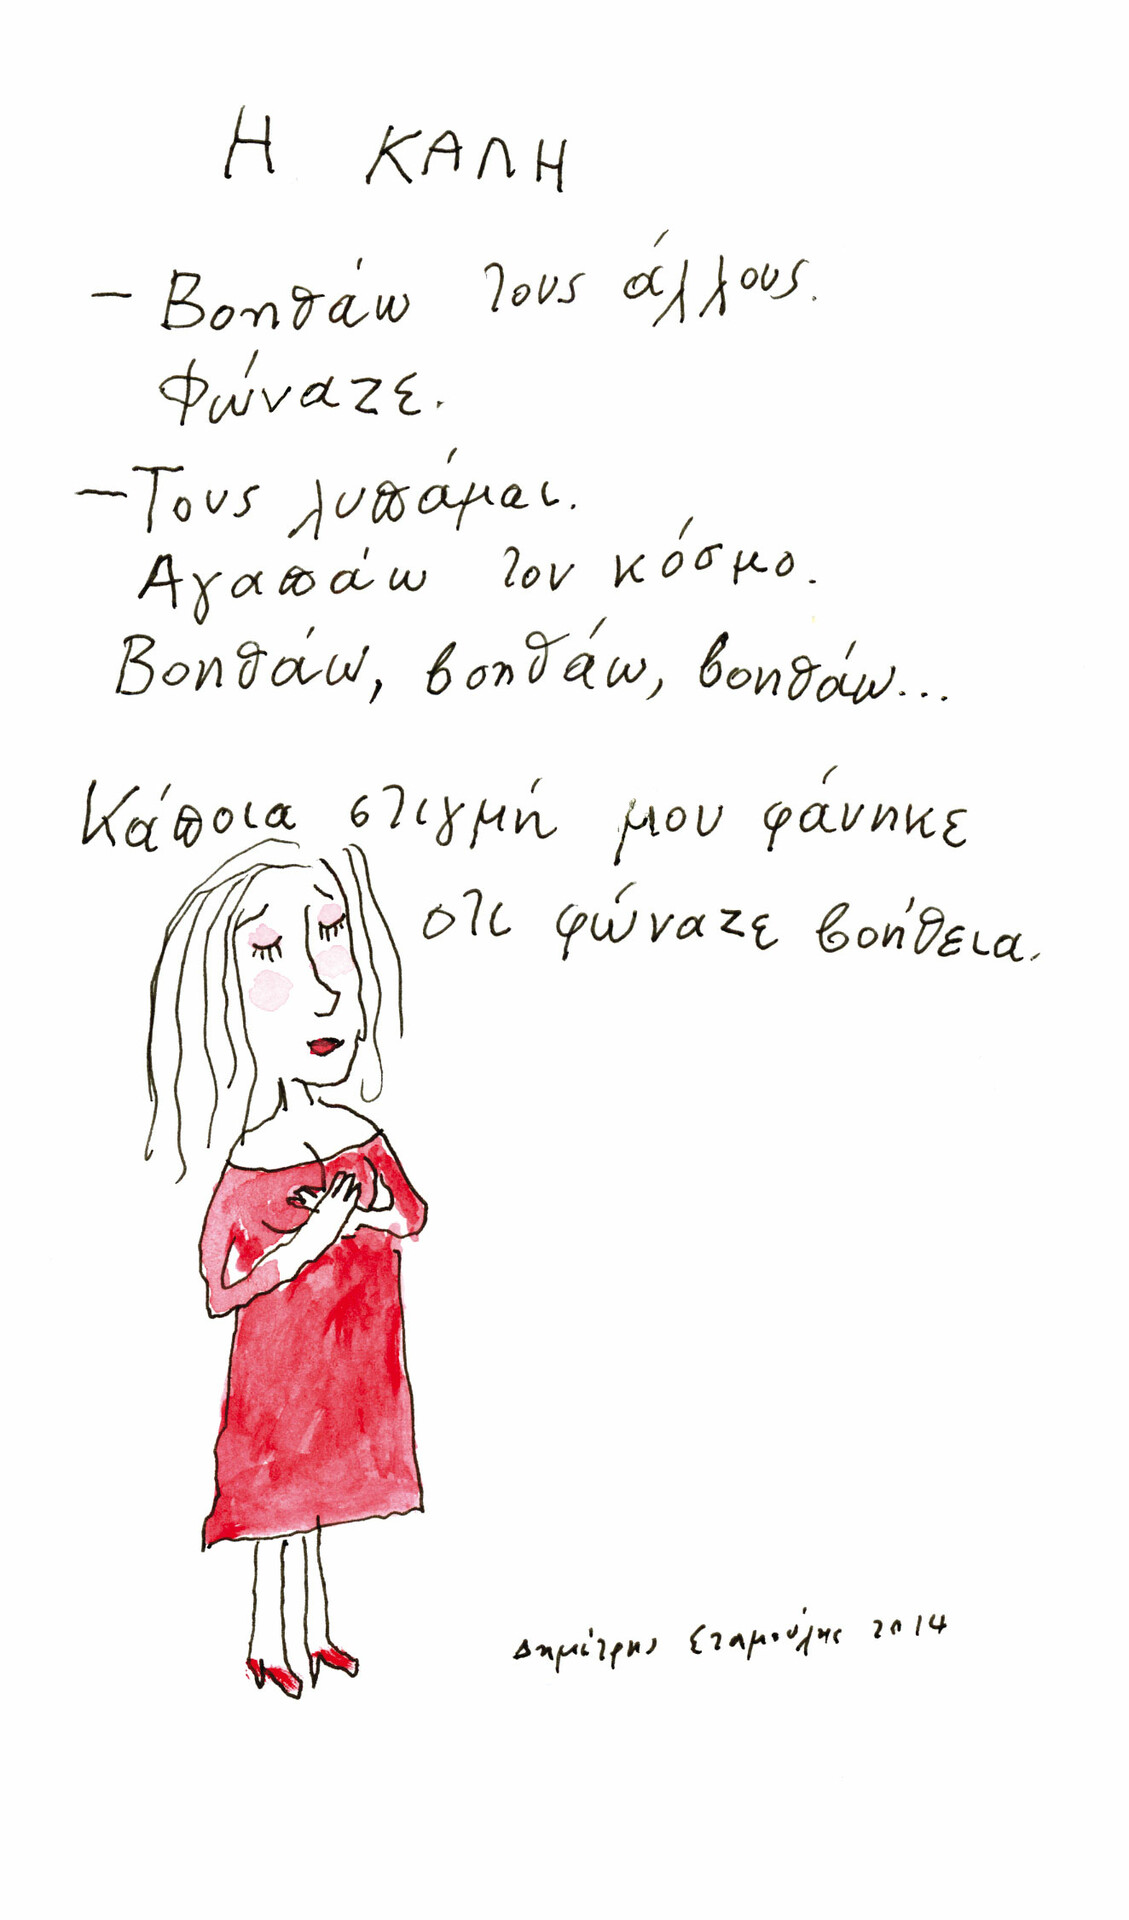 Η ΚΑΛΗ
– Βοηθάω τους άλλους.
Φώναζε.
– Τους λυπάμαι.
Αγαπάω τον κόσμο.
Βοηθάω, βοηθάω, βοηθάω...
Κάποια στιγμή μου φάνηκε
οτι φώναζε βοήθεια.
Δημήτρης Σταμούλης 2014